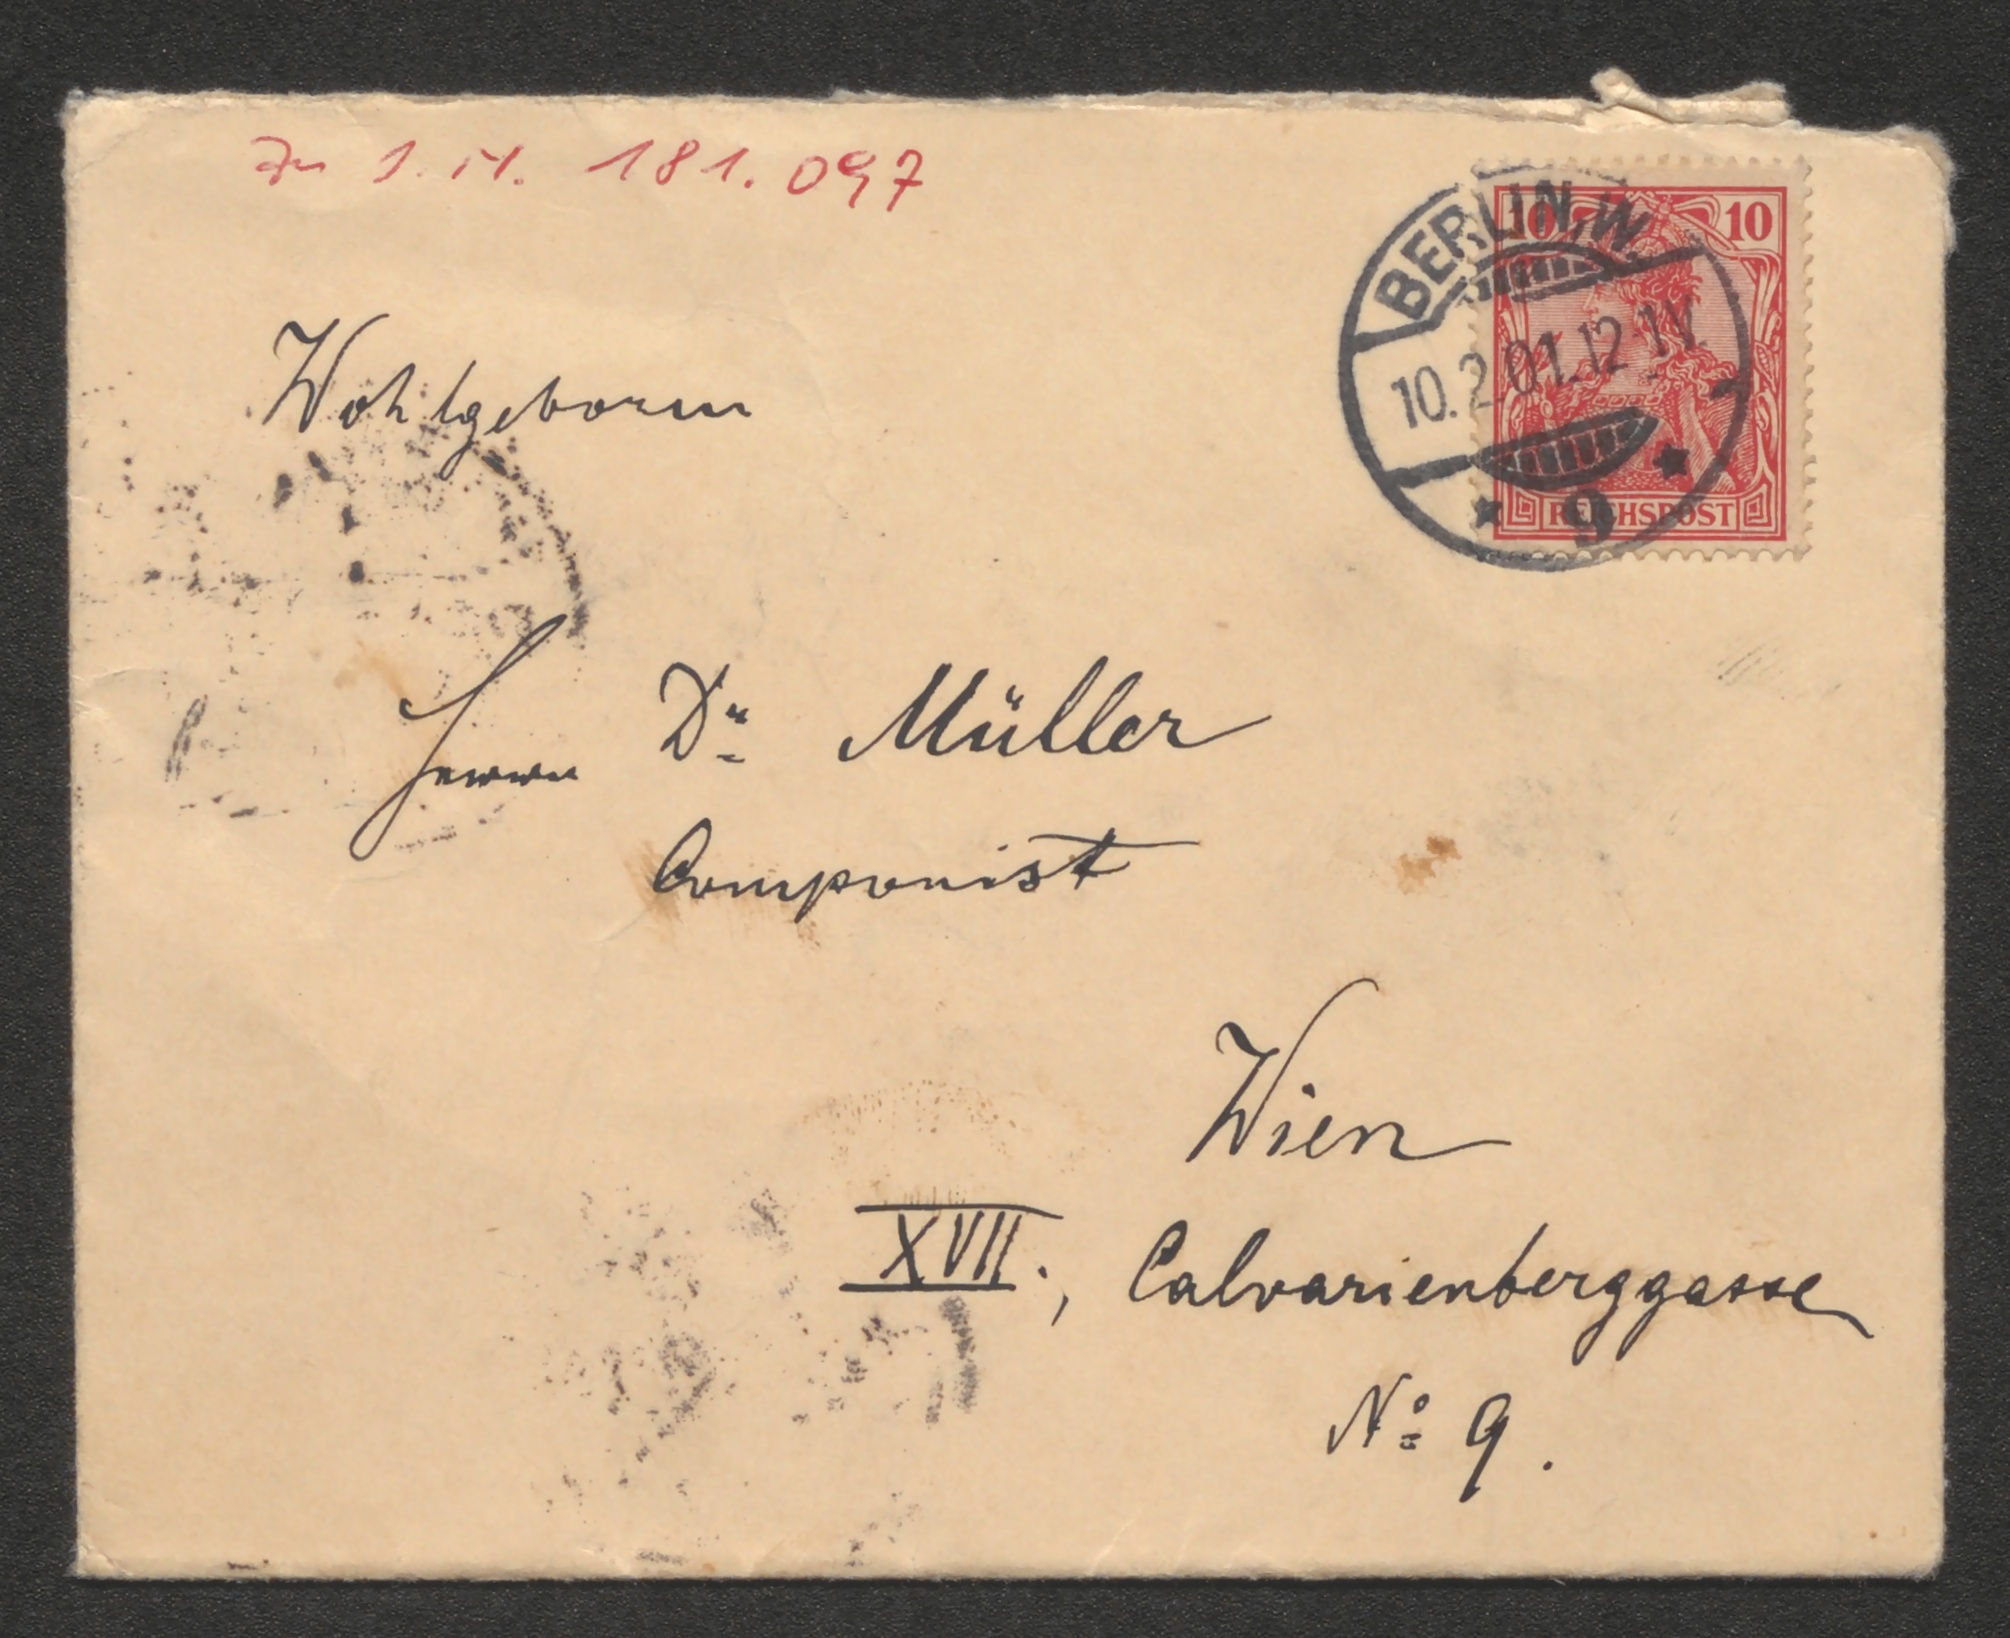 Zu I.N. 181.097
BERLIN, W.
10 10
10.2.01.12-1N.
* 9 *
REICHSPOST
Wohlgeboren
Herrn Dr. Müller
Componist
Wien
XVII., Calvarienberggasse
No. 9.